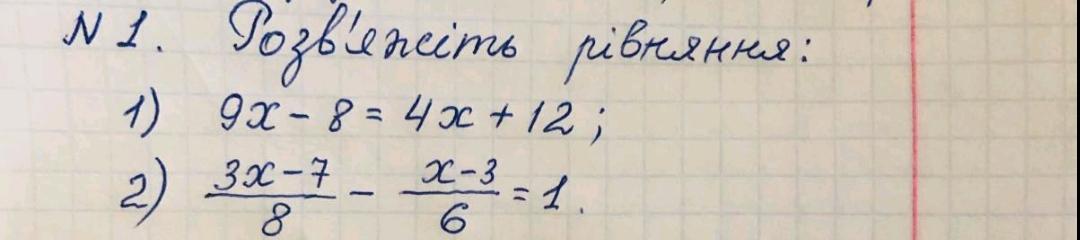 N 1. Розв'яжіть рівняння:
1) 9x - 8 = 4x + 12 ;
2) (3x-7)/8 - (x-3)/6 = 1.